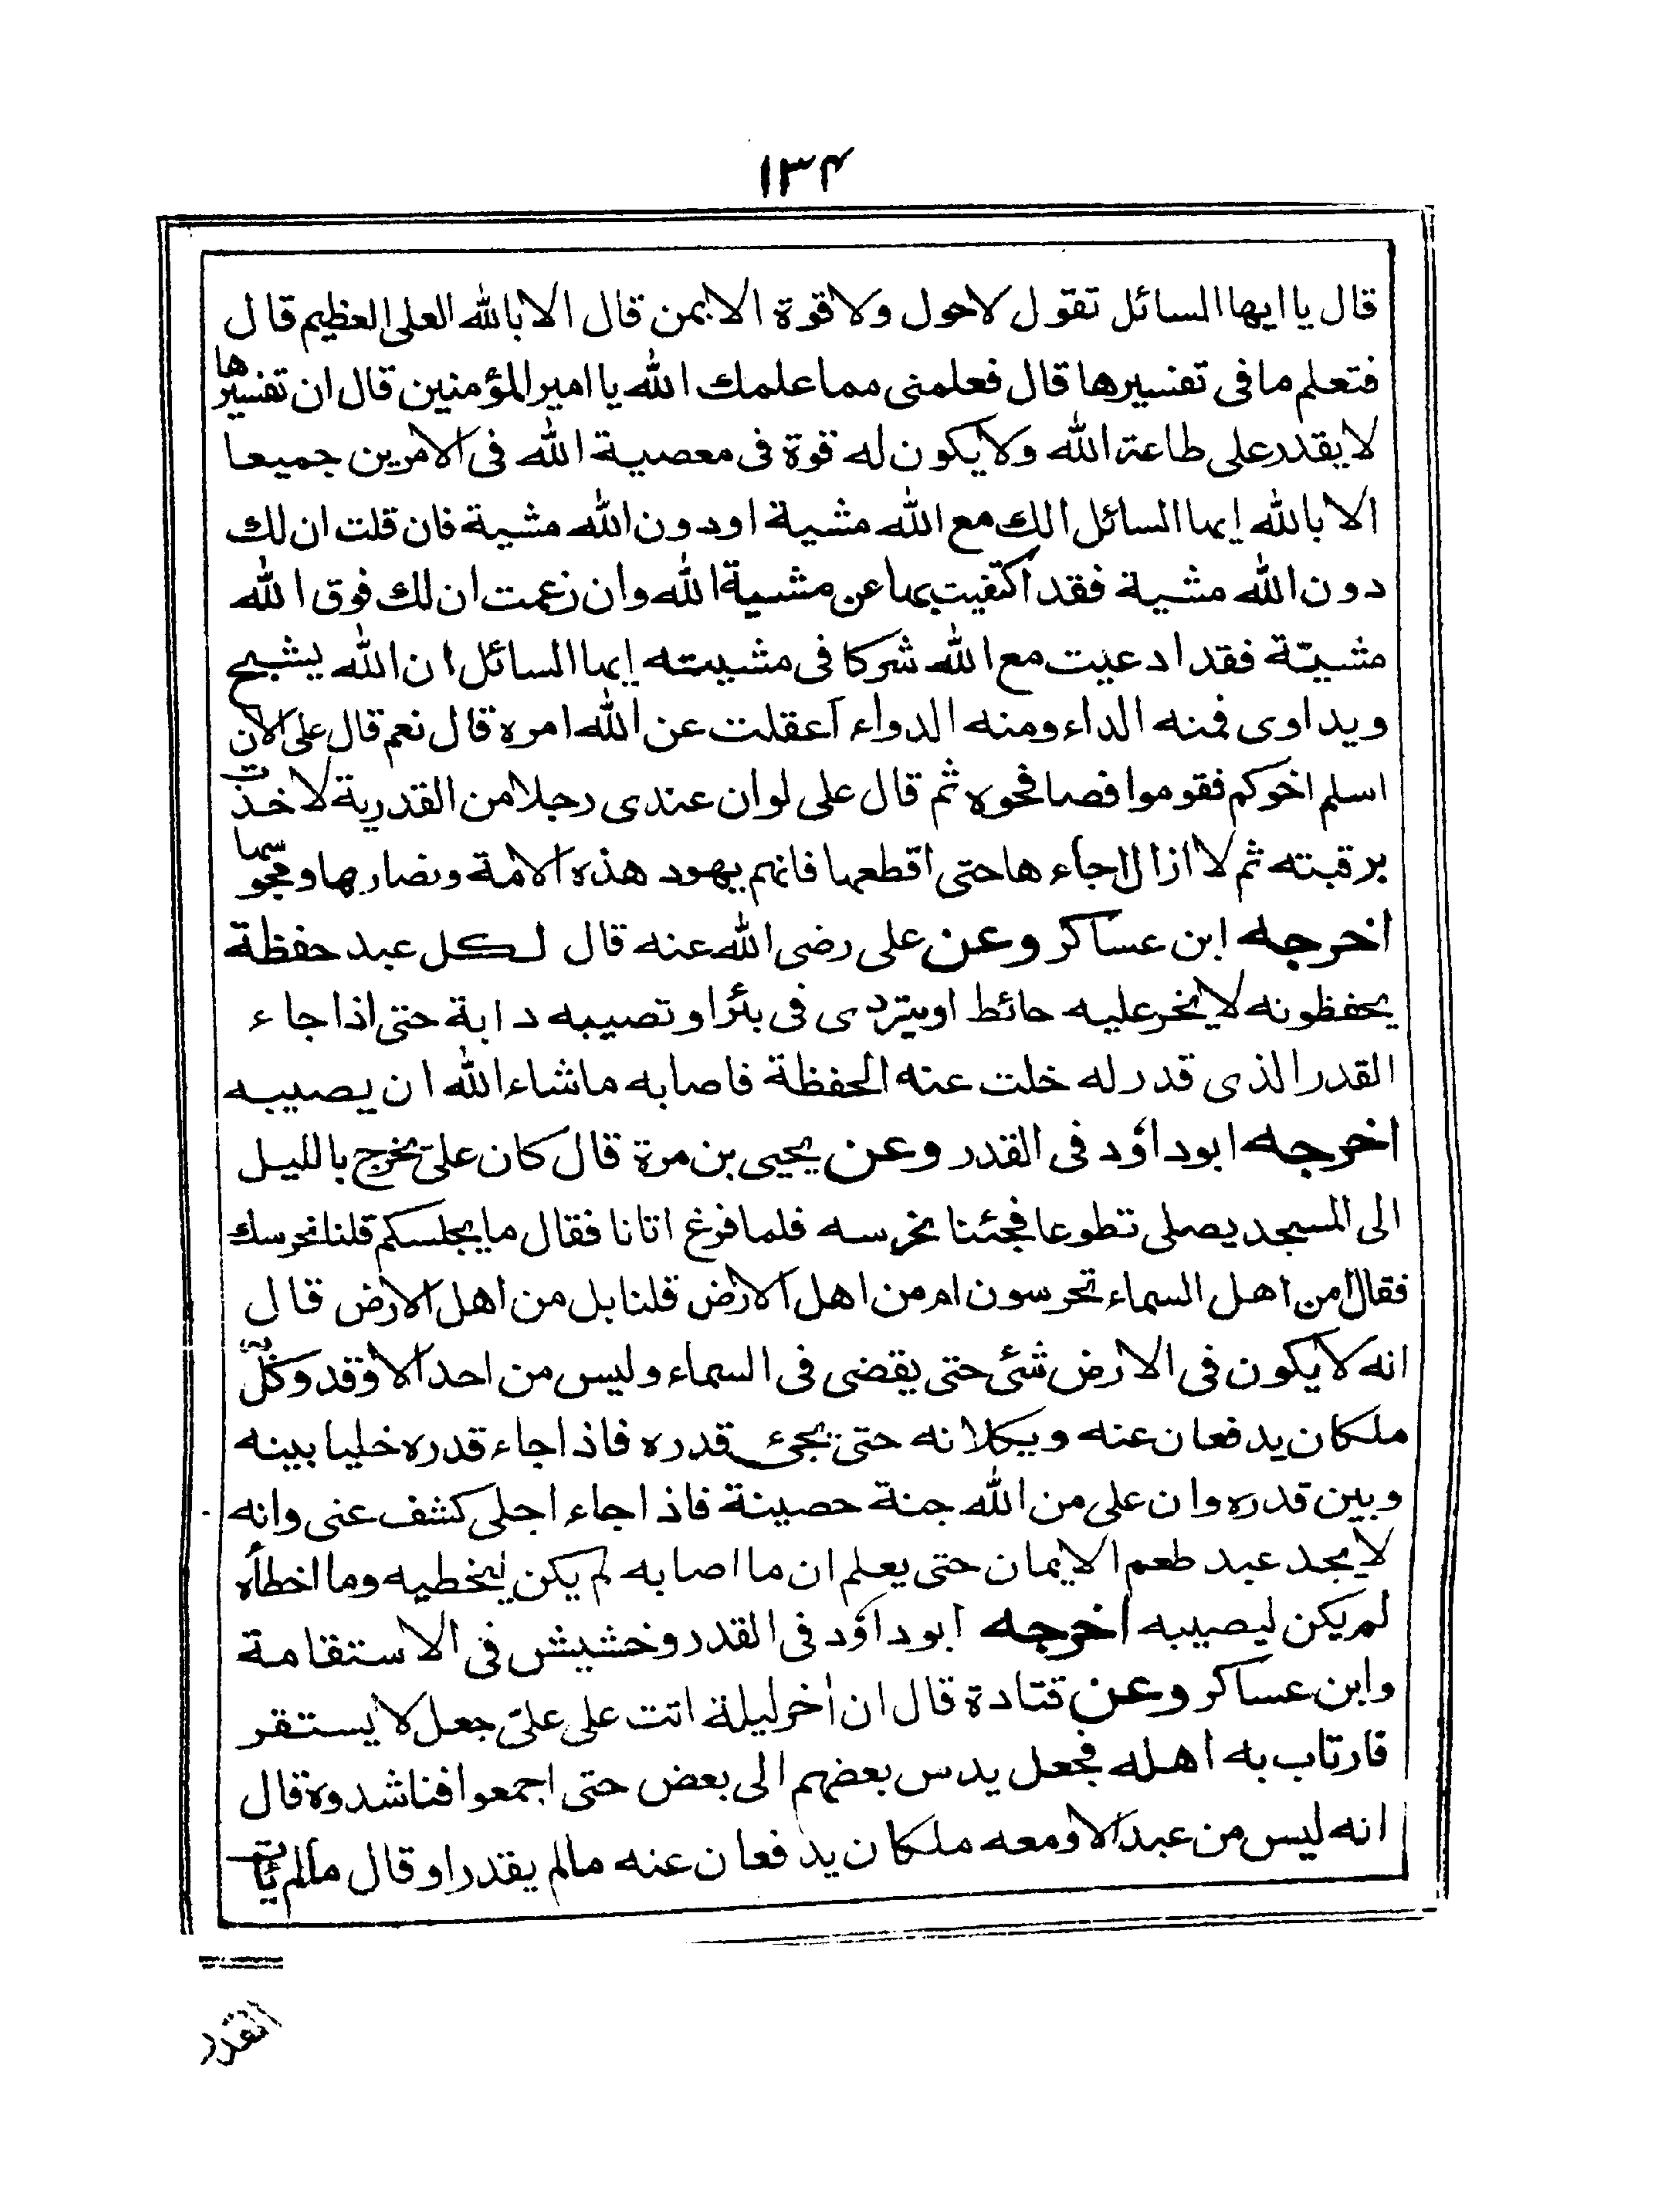 ١٣۴
قال يا ايها السائل تقول لاحول ولا قوة الا بمن قال الا بالله العلى العظيم قال
فتعلم ما فى تفسيرها قال فعلمنى مما علمك الله يا امير المؤمنين قال ان تفسيرها
لا يقدر على طاعة الله ولا يكون له قوة فى معصية الله فى الامرين جميعا
الا بالله ايها السائل الك مع الله مشية او دون الله مشية فان قلت ان لك
دون الله مشية فقد اكتفيت بها عن مشية الله وان زعمت ان لك فوق الله
مشيّة فقد ادعيت مع الله شركا فى مشيته ايها السائل ان الله يشبح
ويداوى فمنه الداء ومنه الدواء أعقلت عن الله امره قال نعم قال على الآن
اسلم اخوكم فقوموا فصافحوه ثم قال على لوان عندى رجلا من القدرية لاخذت
برقبته ثم لا ازال اجاء ها حتى اقطعها فانهم يهود هذه الامة ونصاريها ومجوسها
اخرجه ابن عساكر وعن على رضى الله عنه قال لكل عبد حفظة
يحفظونه لا يخر عليه حائط او يتردى فى بئر او تصيبه دابة حتى اذا جاء
القدر الذى قدر له خلت عنه الحفظة فاصابه ماشاء الله ان يصيبه
اخرجه ابوداؤد فى القدر وعن يحيى بن مرة قال كان علىّ يخرج بالليل
الى المسجد يصلى تطوعا فجئنا نحرسه فلما فرغ اتانا فقال ما يجلسكم قلنا نحرسك
فقال امن اهل السماء تحرسون ام من اهل الارض قلنا بل من اهل الارض قال
انه لا يكون فى الارض شئ حتى يقضى فى السماء وليس من احد الا وقد وكّل به
ملكان يدفعان عنه ويكلانه حتى يجئ قدره فاذا جاء قدره خليا بينه
وبين قدره وان على من الله جنة حصينة فاذا جاء اجلى كشف عنى وانه
لا يجد عبد طعم الايمان حتى يعلم ان ما اصابه لم يكن ليخطيه وما اخطأه
لم يكن ليصيبه اخرجه ابوداؤد فى القدر وخشيش فى الاستقامة
وابن عساكر وعن قتادة قال ان اخر ليلة اتت على علىّ جعل لا يستقر
فارتاب به اهله فجعل يدس بعضهم الى بعض حتى اجمعوا فناشدوه قال
انه ليس من عبد الا ومعه ملكان يدفعان عنه مالم يقدر او قال مالم يأت
القدر